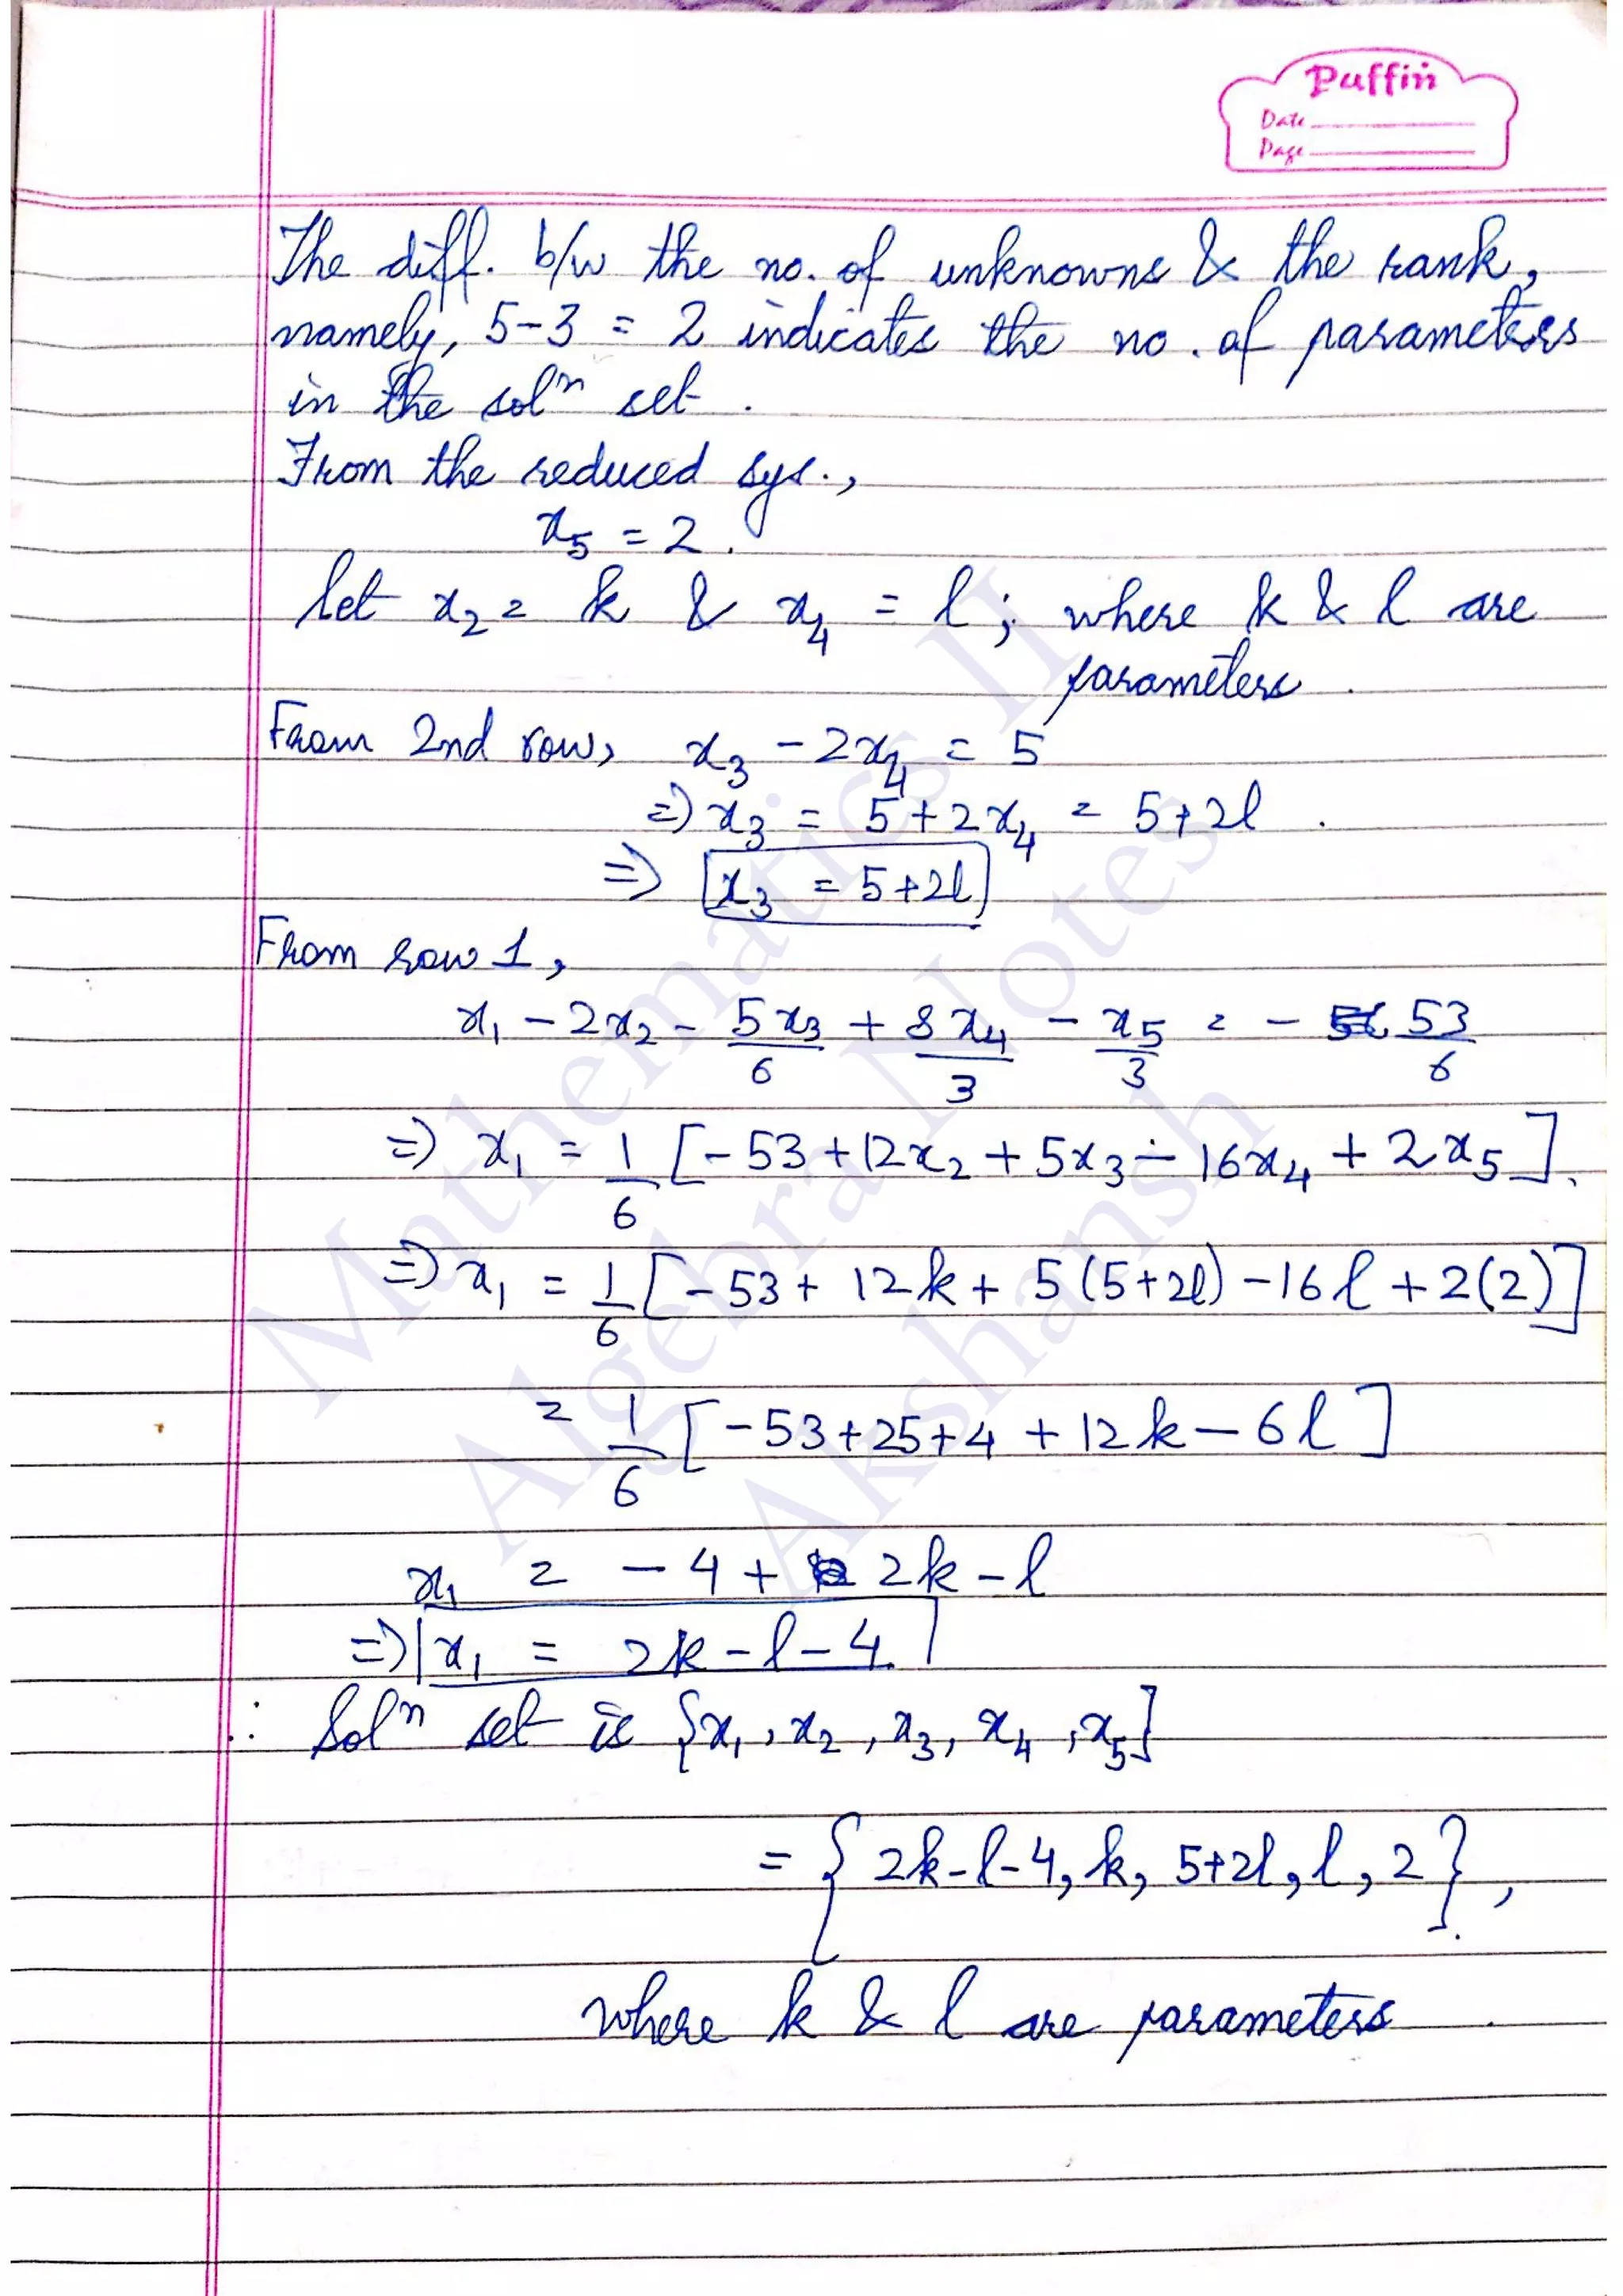 Puffin
Date
Page
The diff. b/w the no. of unknowns & the rank,
namely, 5-3 = 2 indicates the no. of parameters
in the solⁿ set.
From the reduced sys.,
x₅ = 2.
Let x₂ = k & x₄ = l; where k & l are
parameters.
From 2nd row, x₃ - 2x₄ = 5
=> x₃ = 5 + 2x₄ = 5+2l.
=> x₃ = 5+2l
From row 1,
x₁ - 2x₂ - 5x₃/6 + 8x₄/3 - x₅/3 = - 53/6
=> x₁ = 1/6 [-53 + 12x₂ + 5x₃ - 16x₄ + 2x₅].
=> x₁ = 1/6 [-53 + 12k + 5(5+2l) - 16l + 2(2)]
= 1/6 [-53+25+4 + 12k - 6l]
x₁ = -4 + 2k - l
=> x₁ = 2k - l - 4.
∴ Solⁿ set is {x₁, x₂, x₃, x₄, x₅}
= {2k-l-4, k, 5+2l, l, 2},
where k & l are parameters.
Mathematics II
Algebra Notes
Akshansh